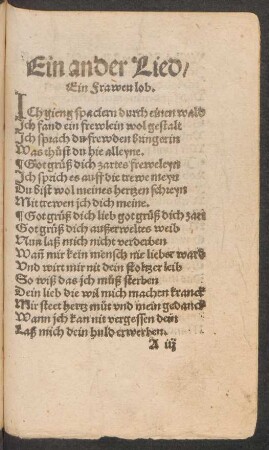 Ein ander Lied/
Ein Frawen lob.
ICh gieng spaciern durch einen wald
Jch fand ein frewlein wol gestalt
Jch sprach du frewden bringerin
Was thůst du hie alleyne.
¶ Got grůß dich zartes freweleyn
Jch sprich es auff die trewe meyn
Du bist wol meines hertzen schreyn
Mit trewen ich dich meine.
¶ Got grůß dich lieb got grůß dich zart
Got grůß dich außerweltes weib
Nun laß mich nicht verderben
Wañ mir kein mensch nie lieber ward
Vnd wirt mir nit dein stoltzer leib
So wiß das ich můß sterben
Dein lieb die wil mich machen kranck
Mir steet hertz můt vnd mein gedanck
Wann ich kan nit vergessen dein
Laß mich dein huld erwerben.
A iij